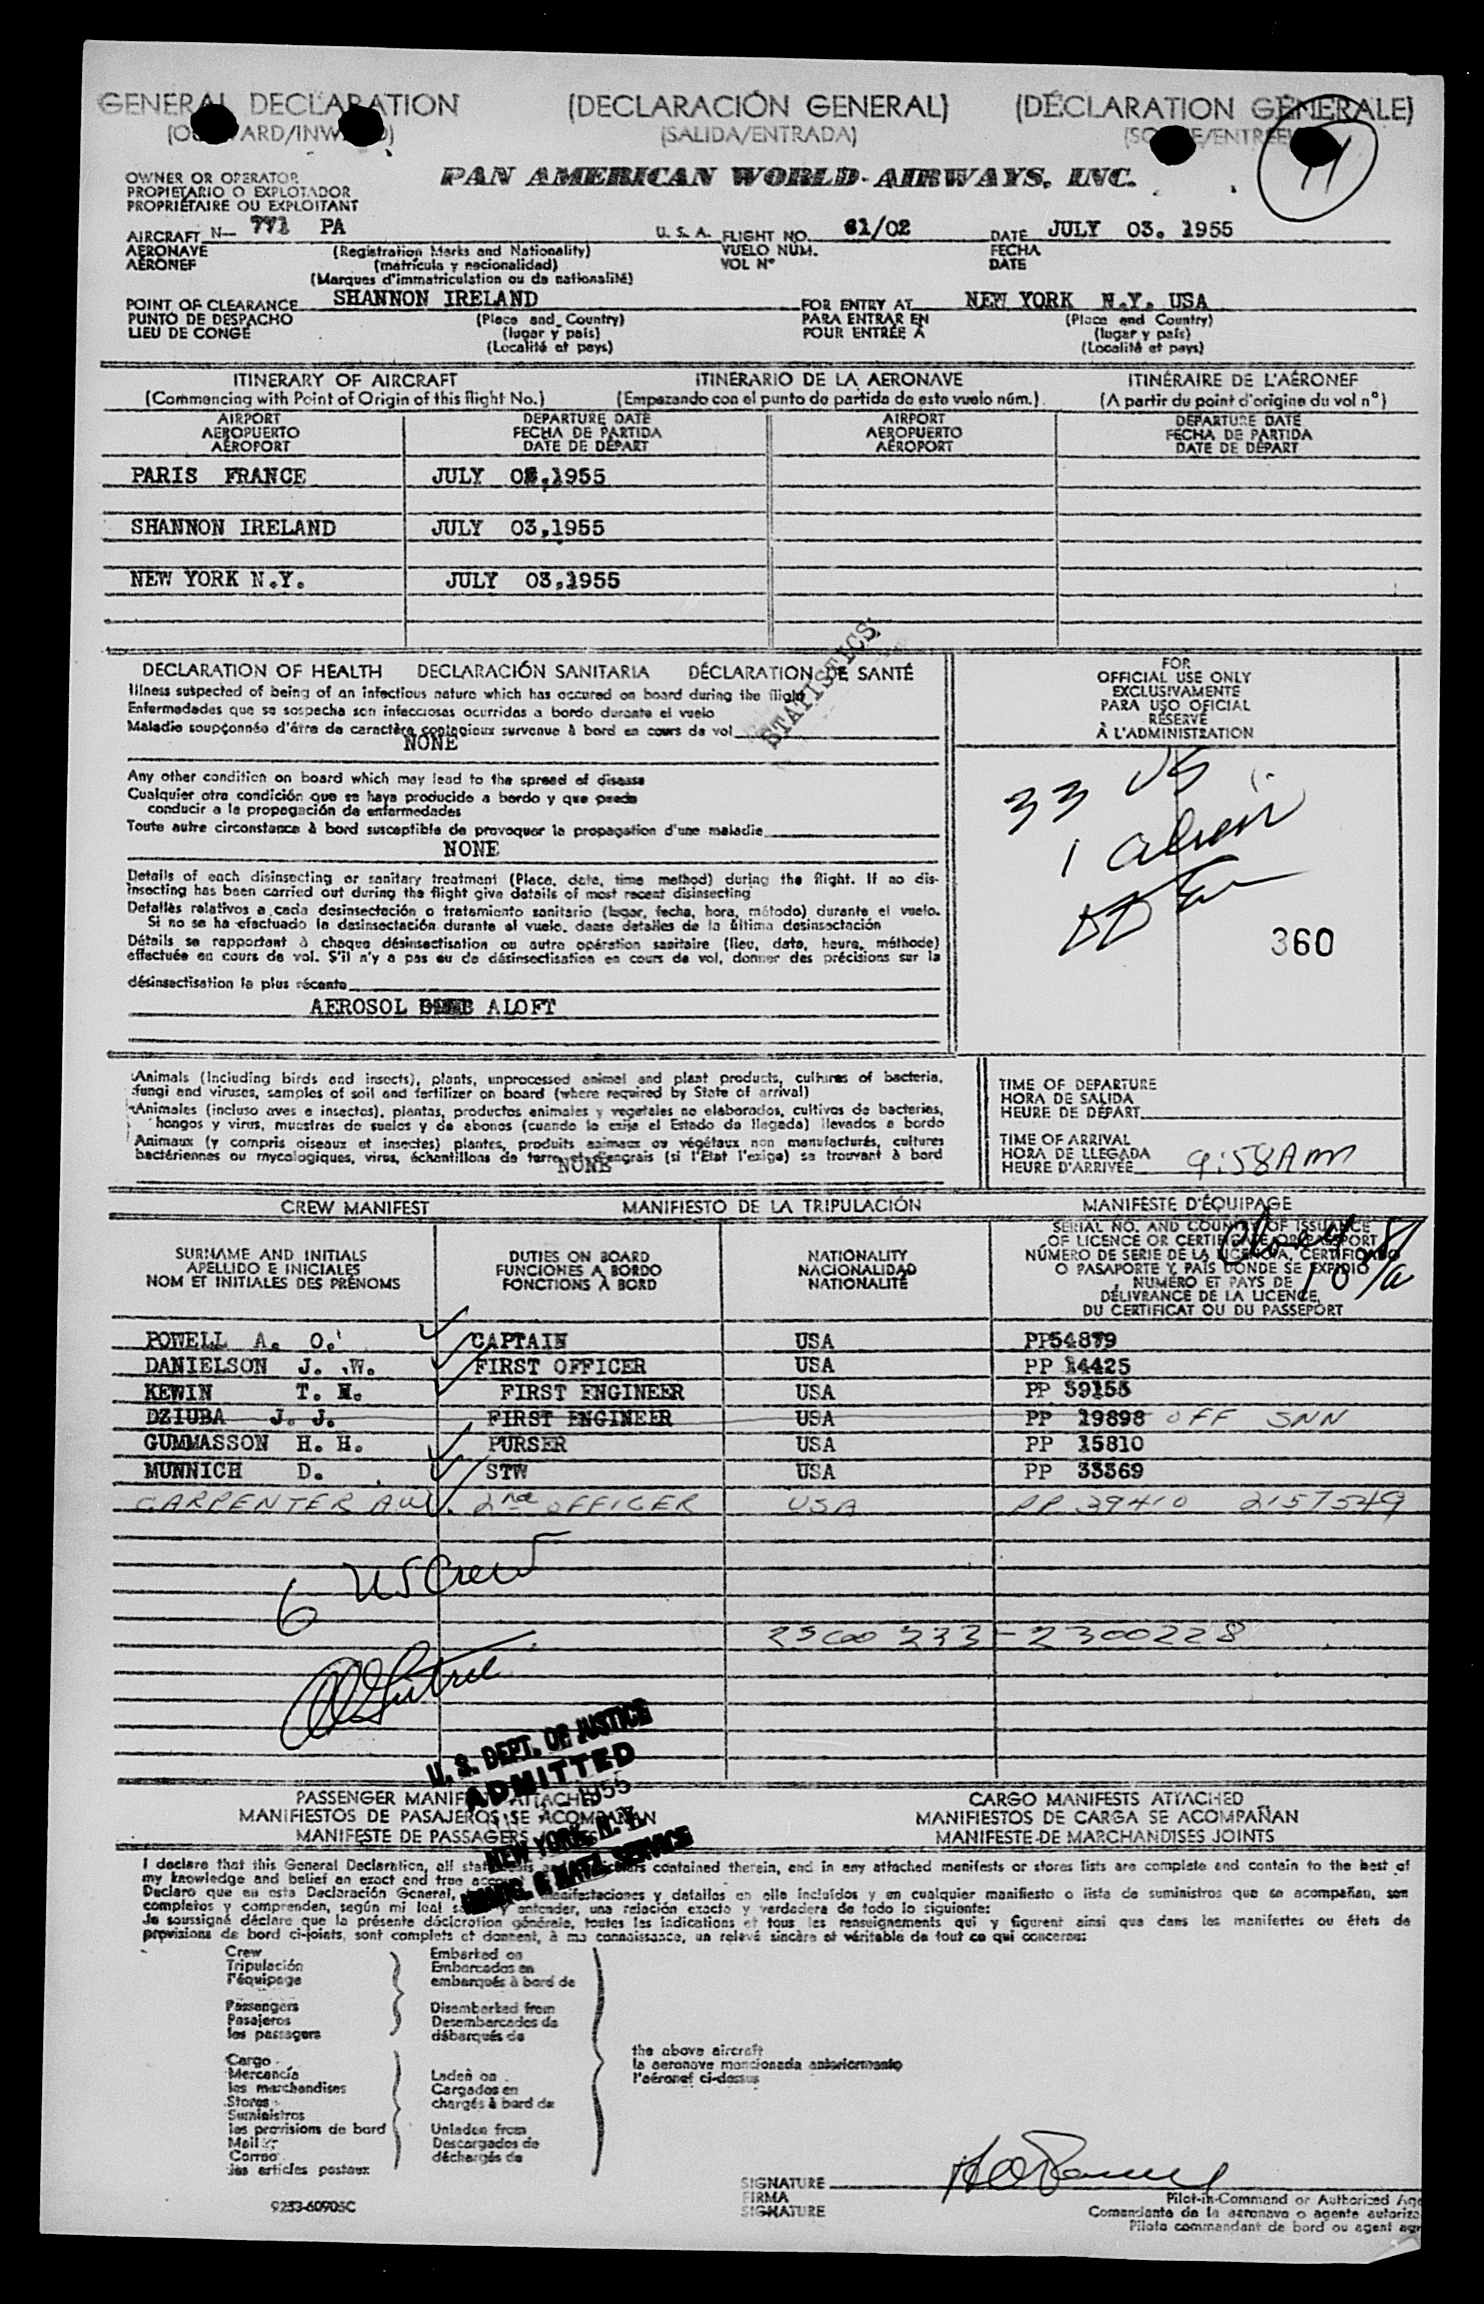 GENERAL DECLARATION (DECLARACIÓN GENERAL) (DÉCLARATION GÉNÉRALE)
(OUTWARD/INWARD) (SALIDA/ENTRADA)
11
OWNER OR OPERATOR
PROPIETARIO O EXPLOTADOR
PROPRIÉTAIRE OU EXPLOITANT
PAN AMERICAN WORLD AIRWAYS, INC.
AIRCRAFT N— 771 PA U. S. A. FLIGHT NO. 61/02 DATE JULY 03. 1955
AERONAVE (Registration Marks and Nationality) VUELO NÚM. FECHA
AÉRONEF (matrícula y nacionalidad) VOL N° DATE
(Marques d'immatriculation ou de nationalité)
POINT OF CLEARANCE SHANNON IRELAND FOR ENTRY AT NEW YORK N.Y. USA
PUNTO DE DESPACHO (Place and Country) PARA ENTRAR EN (Place and Country)
LIEU DE CONGÉ (lugar y país) POUR ENTRÉE À (lugar y país)
(Localité et pays) (Localité et pays)
ITINERARY OF AIRCRAFT ITINERARIO DE LA AERONAVE ITINÉRAIRE DE L'AÉRONEF
(Commencing with Point of Origin of this flight No.) (Empezando con el punto de partida de este vuelo núm.) (A partir du point d'origine du vol n°)
AIRPORT DEPARTURE DATE AIRPORT DEPARTURE DATE
AEROPUERTO FECHA DE PARTIDA AEROPUERTO FECHA DE PARTIDA
AÉROPORT DATE DE DÉPART AÉROPORT DATE DE DÉPART
PARIS FRANCE JULY ,1955
SHANNON IRELAND JULY 03,1955
NEW YORK N.Y. JULY 03,1955
STATISTICS
DECLARATION OF HEALTH DECLARACIÓN SANITARIA DÉCLARATION DE SANTÉ
Illness suspected of being of an infectious nature which has occured on board during the flight
Enfermedades que se sospecha son infecciosas ocurridas a bordo durante el vuelo
Maladie soupçonnée d'être de caractère contagieux survenue à bord en cours de vol
NONE
Any other condition on board which may lead to the spread of disease
Cualquier otra condición que se haya producido a bordo y que pueda
conducir a la propagación de enfermedades
Toute autre circonstance à bord susceptible de provoquer la propagation d'une maladie
NONE
Details of each disinsecting or sanitary treatment (Place, date, time method) during the flight. If no dis-
insecting has been carried out during the flight give details of most recent disinsecting
Detalles relativos a cada desinsectación o tratamiento sanitario (lugar, fecha, hora, método) durante el vuelo.
Si no se ha efectuado la desinsectación durante el vuelo, dense detalles de la última desinsectación
Détails se rapportant à chaque désinsectisation ou autre opération sanitaire (lieu, date, heure, méthode)
effectuée en cours de vol. S'il n'y a pas eu de désinsectisation en cours de vol, donner des précisions sur la
désinsectisation la plus récente
AEROSOL ALOFT
FOR
OFFICIAL USE ONLY
EXCLUSIVAMENTE
PARA USO OFICIAL
RÉSERVÉ
À L'ADMINISTRATION
33 US
1 alien
360
Animals (Including birds and insects), plants, unprocessed animal and plant products, cultures of bacteria,
fungi and viruses, samples of soil and fertilizer on board (where required by State of arrival)
Animales (incluso aves e insectos), plantas, productos animales y vegetales no elaborados, cultivos de bacterias,
hongos y virus, muestras de suelos y de abonos (cuando lo exija el Estado da llegada) llevados a bordo
Animaux (y compris oiseaux et insectes) plantes, produits animaux ou végétaux non manufacturés, cultures
bactériennes ou mycologiques, virus, échantillons de terre et d'engrais (si l'Etat l'exige) se trouvant à bord
NONE
TIME OF DEPARTURE
HORA DE SALIDA
HEURE DE DÉPART
TIME OF ARRIVAL
HORA DE LLEGADA
HEURE D'ARRIVÉE 9:58AM
CREW MANIFEST MANIFIESTO DE LA TRIPULACIÓN MANIFESTE D'ÉQUIPAGE
SURNAME AND INITIALS
APELLIDO E INICIALES
NOM ET INITIALES DES PRÉNOMS
DUTIES ON BOARD
FUNCIONES A BORDO
FONCTIONS À BORD
NATIONALITY
NACIONALIDAD
NATIONALITÉ
SERIAL NO. AND COUNTRY OF ISSUANCE
OF LICENCE OR CERTIFICATE OR PASSPORT
NÚMERO DE SERIE DE LA LICENCIA, CERTIFICADO
O PASAPORTE Y PAÍS DONDE SE EXPIDIÓ
NUMÉRO ET PAYS DE
DÉLIVRANCE DE LA LICENCE,
DU CERTIFICAT OU DU PASSEPORT
POWELL A. O. CAPTAIN USA PP54879
DANIELSON J. W. FIRST OFFICER USA PP 14425
KEWIN T. FIRST ENGINEER USA PP 39155
DZIUBA J. J. FIRST ENGINEER USA PP 19898 OFF SNN
GUMMASSON H. H. PURSER USA PP 15810
MUNNICH D. STW USA PP 33369
CARPENTER A.W. 2nd OFFICER USA PP 39410 2157549
6 US Crew
2300228
U. S. DEPT. OF JUSTICE
ADMITTED
1955
NEW YORK, N. Y.
IMMIG. & NATZ. SERVICE
PASSENGER MANIFESTS ATTACHED CARGO MANIFESTS ATTACHED
MANIFIESTOS DE PASAJEROS SE ACOMPAÑAN MANIFIESTOS DE CARGA SE ACOMPAÑAN
MANIFESTE DE PASSAGERS MANIFESTE DE MARCHANDISES JOINTS
I declare that this General Declaration, all statements and particulars contained therein, and in any attached manifests or stores lists are complete and contain to the best of
my knowledge and belief an exact and true account
Declaro que en esta Declaración General, manifestaciones y detalles en ella incluídos y en cualquier manifiesto o lista de suministros que se acompañan, son
completos y comprenden, según mi leal saber y entender, una relación exacta y verdadera de todo lo siguiente:
Je soussigné déclare que la présente déclaration générale, toutes les indications et tous les renseignements qui y figurent ainsi que dans les manifestes ou états de
provisions de bord ci-joints, sont complets et donnent, à ma connaissance, un relevé sincère et véritable de tout ce qui concerne:
Crew Embarked on
Tripulación Embarcados en
l'équipage embarqués à bord de
Passengers Disembarked from
Pasajeros Desembarcados de
les passagers débarqués de
the above aircraft
la aeronave mencionada anteriormente
l'aéronef ci-dessus
Cargo
Mercancía Laden on
les marchandises Cargados en
Stores chargés à bord de
Suministros
les provisions de bord Unladen from
Mail Descargados de
Correo déchargés de
les articles postaux
SIGNATURE
FIRMA
SIGNATURE
Pilot-in-Command or Authorized
Comandante de la aeronave o agente
Pilote commandant de bord ou agent
9233-60905C